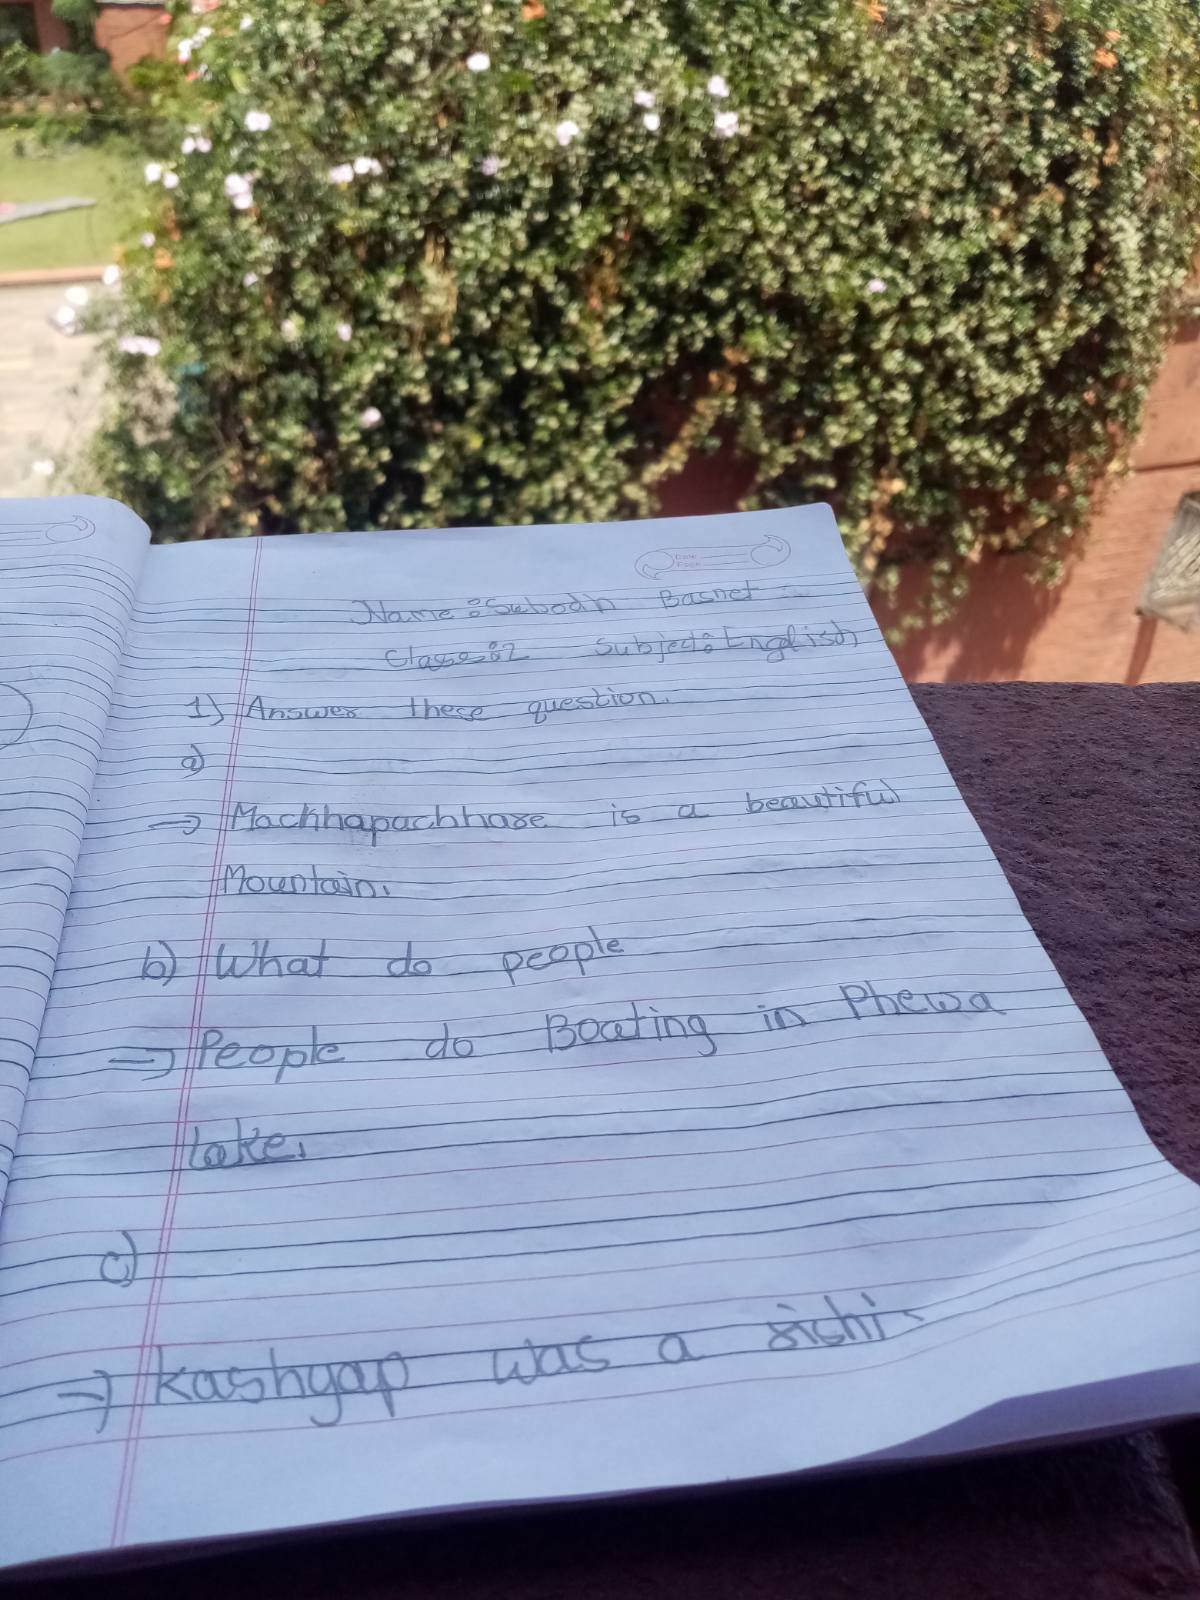 Date
Page
Name: Subodh Basnet
Class: 2 Subject: English
1) Answer these question.
a)
→ Machhapuchhare is a beautiful
Mountain.
b) What do people
→ People do Boating in Phewa
lake.
c)
→ kashyap was a rishi.